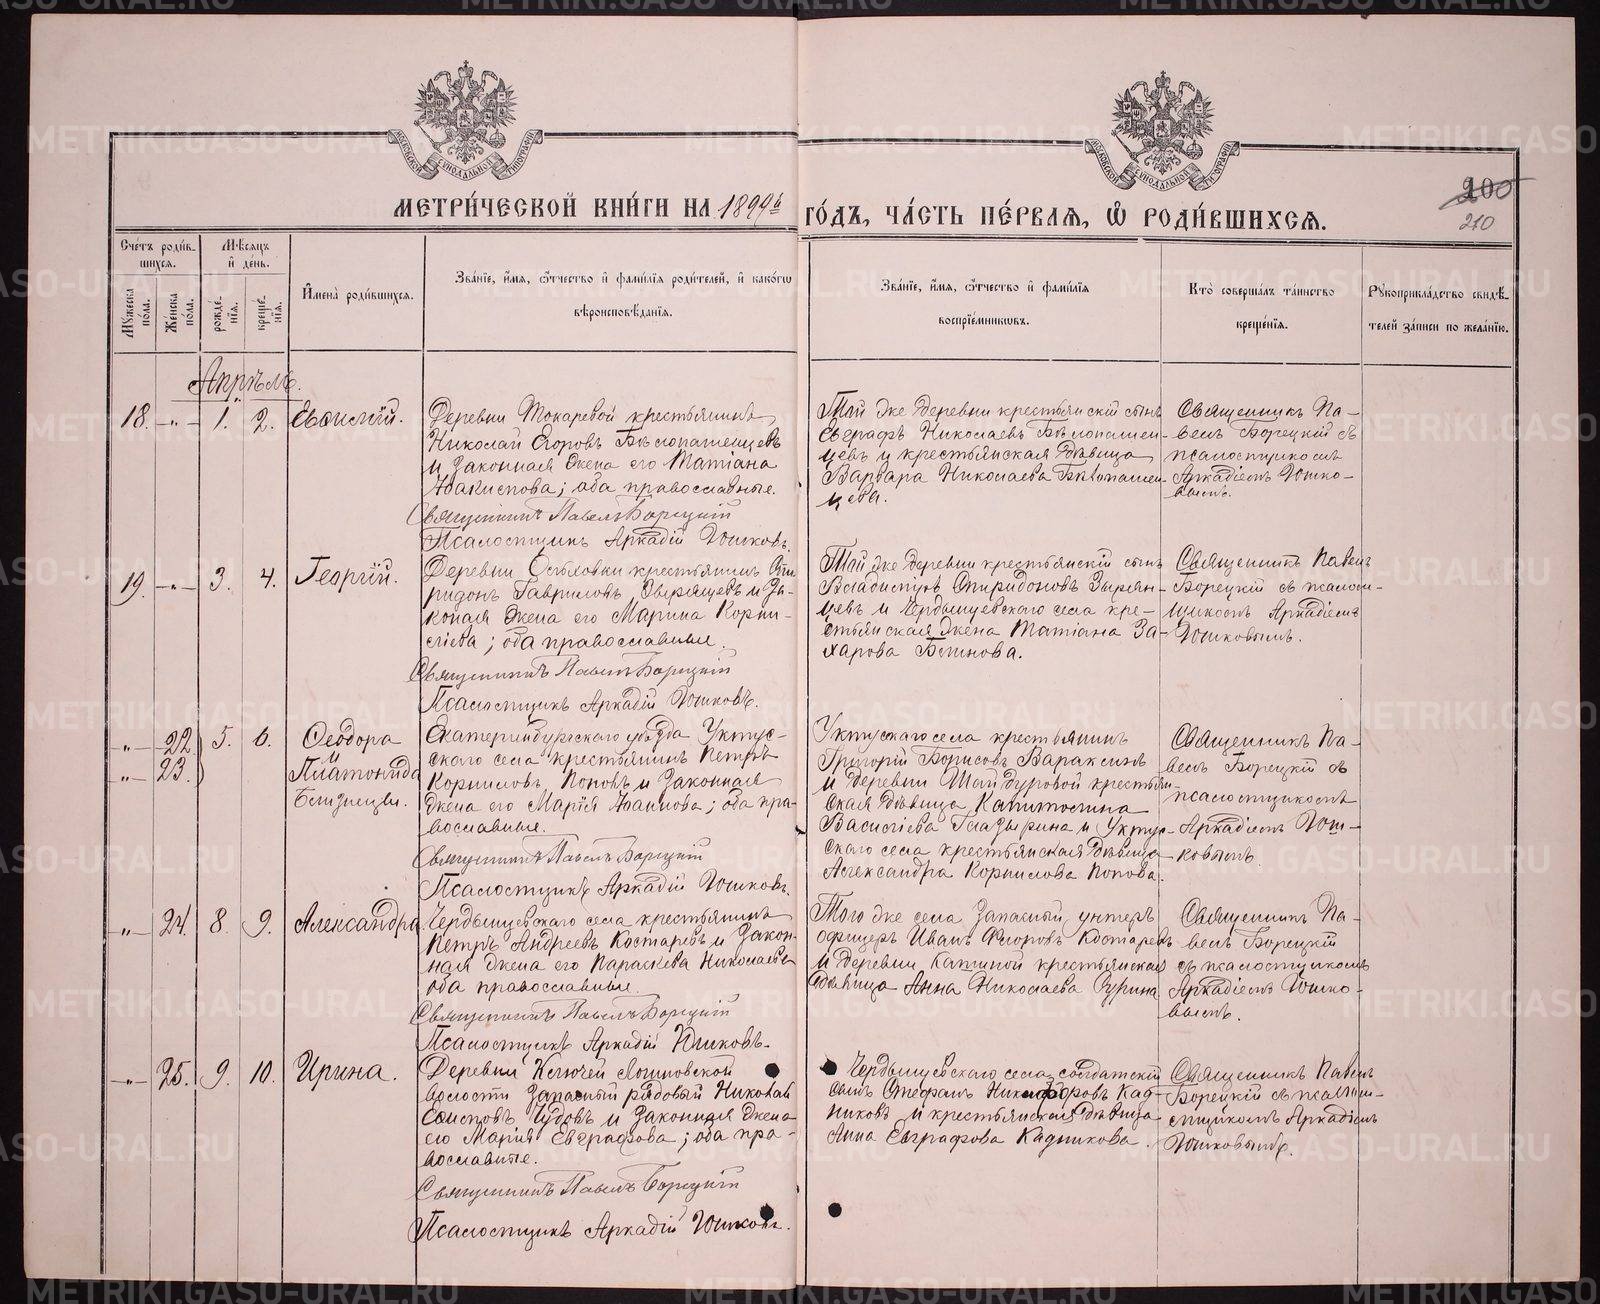 МЕТРИ́ЧЕСКОЙ КНИ́ГИ НА 1899й
ГО́ДЪ, ЧА́СТЬ ПЕ́РВАЯ, Ѽ РОДИ́ВШИХСЯ.
100
210
Сче́тъ роди́в-
шихся.
Мѣ́сяцъ
и҆ де́нь.
Мꙋ́жеска по́ла.
Же́нска по́ла.
рожде́-
нїя.
креще́-
нїя.
И҆мена̀ роди́вшихся.
Зва́нїе, и҆́мя, ѻ҆́тчество и҆ фами́лїя роди́телей, и҆ како́гѡ
вѣроисповѣ́данїя.
Зва́нїе, и҆́мя, ѻ҆́тчество и҆ фами́лїя
воспрїе́мниковъ.
Кто̀ соверша́лъ та́инство
креще́нїя.
Рꙋкоприкла́дство свидѣ́-
телей за́писи по жела́нїю.
Апрѣль.
18. -„- 1. 2. Евсигній.
Деревни Токаревой крестьянинъ
Николай Егоровъ Бѣлопашенцевъ
и законная жена его Татіана
Іоакимова; оба православные.
Священникъ Павелъ Борецкій
Псаломщикъ Аркадій Юшковъ.
Той же деревни крестьянскій сынъ
Евграфъ Николаевъ Бѣлопашен-
цевъ и крестьянская дѣвица
Варвара Николаева Бѣлопашен-
цева.
Священникъ Па-
велъ Борецкій съ
псаломщикомъ
Аркадіемъ Юшко-
вымъ.
19. -„- 3. 4. Георгій.
Деревни крестьянинъ Спи-
ридонъ Гавриловъ Зырянцевъ и за-
конная жена его Марина Корни-
ліева; оба православные.
Священникъ Павелъ Борецкій
Псаломщикъ Аркадій Юшковъ.
Той же деревни крестьянскій сынъ
Владиміръ Спиридоновъ Зырян-
цевъ и Чердынцевскаго села кре-
стьянская жена Татіана За-
харова Блинова.
Священникъ Павелъ
Борецкій съ псалом-
щикомъ Аркадіемъ
Юшковымъ.
„ 22. 5. 6. Ѳеодора
и
„ 23. Платонида
Близнецы.
Екатеринбургскаго уѣзда Уктус-
скаго села крестьянинъ Петръ
Корниловъ Поповъ и законная
жена его Марія Іоаннова; оба пра-
вославные.
Священникъ Павелъ Борецкій
Псаломщикъ Аркадій Юшковъ.
Уктускаго села крестьянинъ
Григорій Борисовъ Вараксинъ
и деревни Шайдуровой крестьян-
ская дѣвица Капитолина
Василіева Глазырина и Уктус-
скаго села крестьянская дѣвица
Александра Корнилова Попова.
Священникъ Па-
велъ Борецкій съ
псаломщикомъ
Аркадіемъ Юш-
ковымъ.
„ 24. 8. 9. Александра.
Чердынцевскаго села крестьянинъ
Петръ Андреевъ Костаревъ и закон-
ная жена его Параскева Николаева
оба православные.
Священникъ Павелъ Борецкій
Псаломщикъ Аркадій Юшковъ.
Того же села запасный унтеръ
офицеръ Иванъ Флоровъ Костаревъ
и деревни крестьянская
дѣвица Анна Николаева Сурина
Священникъ Па-
велъ Борецкій
съ псаломщикомъ
Аркадіемъ Юшко-
вымъ.
-„- 25. 9. 10. Ирина.
Деревни Ключей Логиновской
волости запасный рядовый Николай
Чудовъ и законная жена
его Марія Евграфова; оба пра-
вославные.
Священникъ Павелъ Борецкій
Псаломщикъ Аркадій Юшковъ.
Чердынцевскаго села солдатскій
сынъ Стефанъ Никифоровъ Кад-
никовъ и крестьянская дѣвица
Анна Евграфова Кадникова.
Священникъ Павелъ
Борецкій съ псалом-
щикомъ Аркадіемъ
Юшковымъ.
METRIKI.GASO-URAL.RU